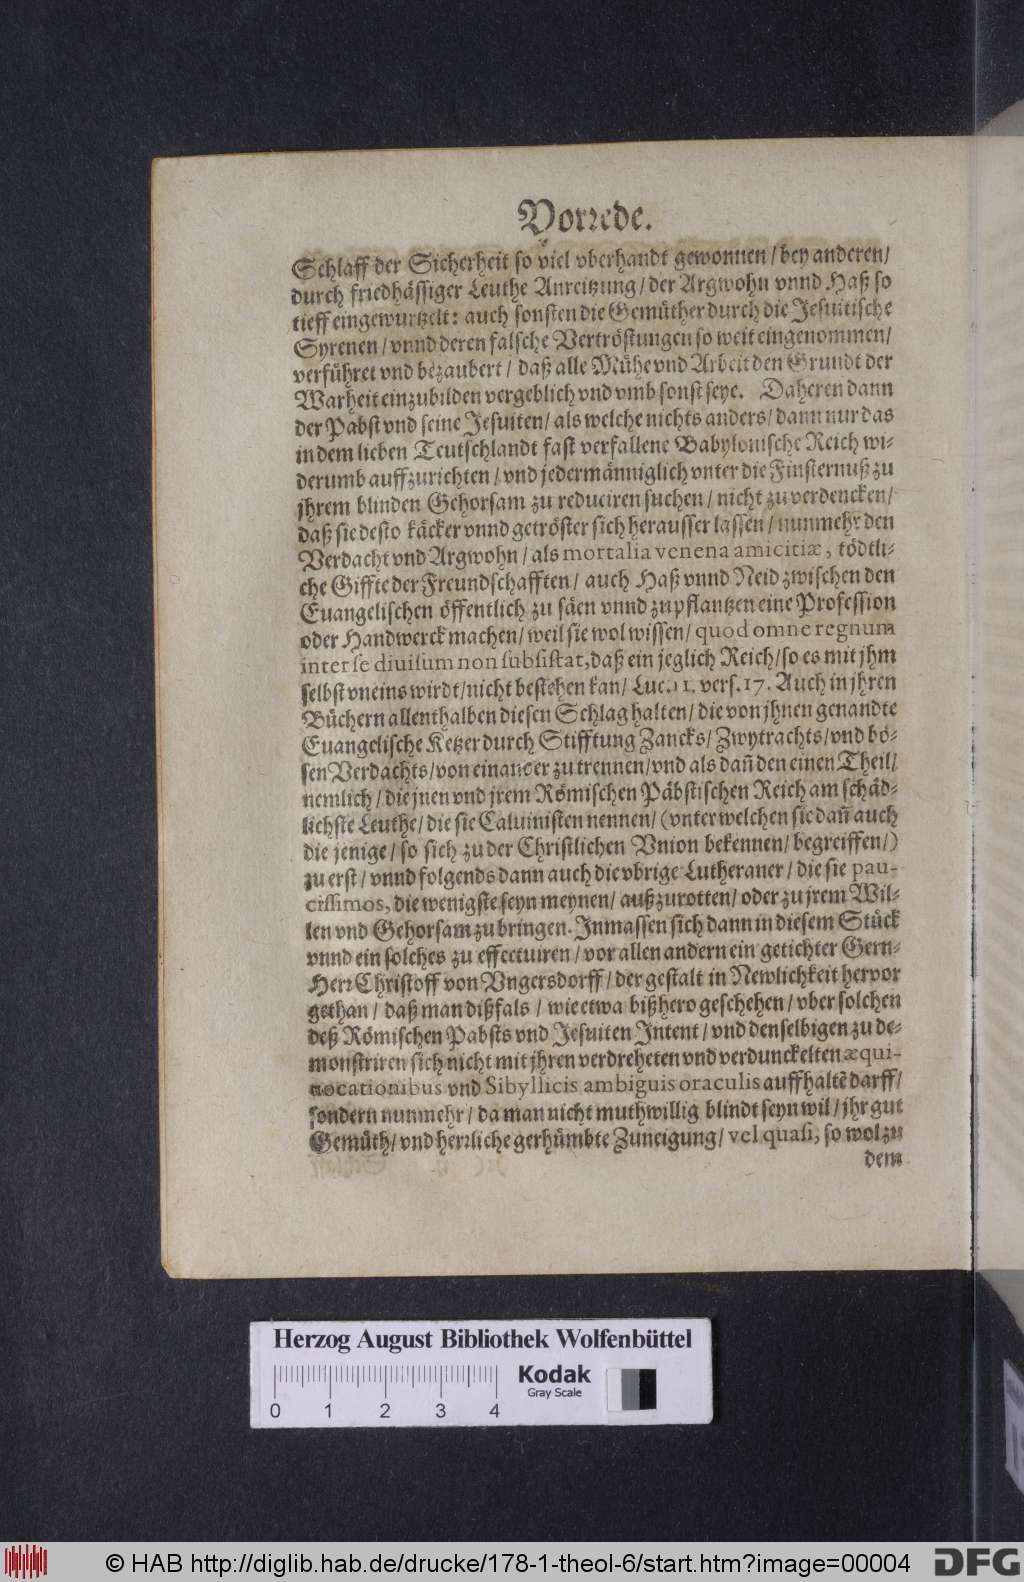 Vorrede.
Schlaff der Sicherheit so viel vberhandt gewonnen / bey anderen /
durch friedhässiger Leuthe Anreitzung / der Argwohn vnnd Haß so
tieff eingewurtzelt: auch sonsten die Gemüther durch die Jesuitische
Syrenen / vnnd deren falsche Vertröstungen so weit eingenommen /
verführet vnd bezaubert / daß alle Mühe vnd Arbeit den Grundt der
Warheit einzubilden vergeblich vnd vmb sonst seye. Daheren dann
der Pabst vnd seine Jesuiten / als welche nichts anders / dann nur das
in dem lieben Teutschlandt fast verfallene Babylonische Reich wi-
derumb auffzurichten / vnd jedermänniglich vnter die Finsternuß zu
jhrem blinden Gehorsam zu reduciren suchen / nicht zu verdencken /
daß sie desto käcker vnnd getröster sich herausser lassen / nunmehr den
Verdacht vnd Argwohn / als mortalia venena amicitiæ, tödtli-
che Giffte der Freundschafften / auch Haß vnnd Neid zwischen den
Euangelischen öffentlich zu säen vnnd zu pflantzen eine Profession
oder Handwerck machen / weil sie wol wissen / quod omne regnum
inter se diuisum non subsistat, daß ein jeglich Reich / so es mit jhm
selbst vneins wirdt / nicht bestehen kan / Luc. 11. vers. 17. Auch in jhren
Büchern allenthalben diesen Schlag halten / die von jhnen genandte
Euangelische Ketzer durch Stifftung Zancks / Zwytrachts / vnd bö-
sen Verdachts / von einander zu trennen / vnd als dañ den einen Theil /
nemlich / die jnen vnd jrem Römischen Päbstischen Reich am schäd-
lichste Leuthe / die sie Caluinisten nennen / (vnter welchen sie dañ auch
die jenige / so sich zu der Christlichen Vnion bekennen / begreiffen /)
zu erst / vnnd folgends dann auch die vbrige Lutheraner / die sie pau-
cissimos, die wenigste seyn meynen / außzurotten / oder zu jrem Wil-
len vnd Gehorsam zu bringen. Inmassen sich dann in diesem Stück
vnnd ein solches zu effectuiren / vor allen andern ein getichter Gern-
Herr Christoff von Vngersdorff / der gestalt in Newlichkeit hervor
gethan / daß man dißfals / wie etwa bißhero geschehen / vber solchen
deß Römischen Pabsts vnd Jesuiten Intent / vnd denselbigen zu de-
monstriren sich nicht mit jhren verdreheten vnd verdunckelten æqui-
uocationibus vnd Sibyllicis ambiguis oraculis auffhaltẽ darff /
sondern nunmehr / da man nicht muthwillig blindt seyn wil / jhr gut
Gemüth / vnd herrliche gerhümbte Zuneigung / vel quasi, so wol zu
dem
Herzog August Bibliothek Wolfenbüttel
Kodak
Gray Scale
0 1 2 3 4
© HAB http://diglib.hab.de/drucke/178-1-theol-6/start.htm?image=00004
DFG